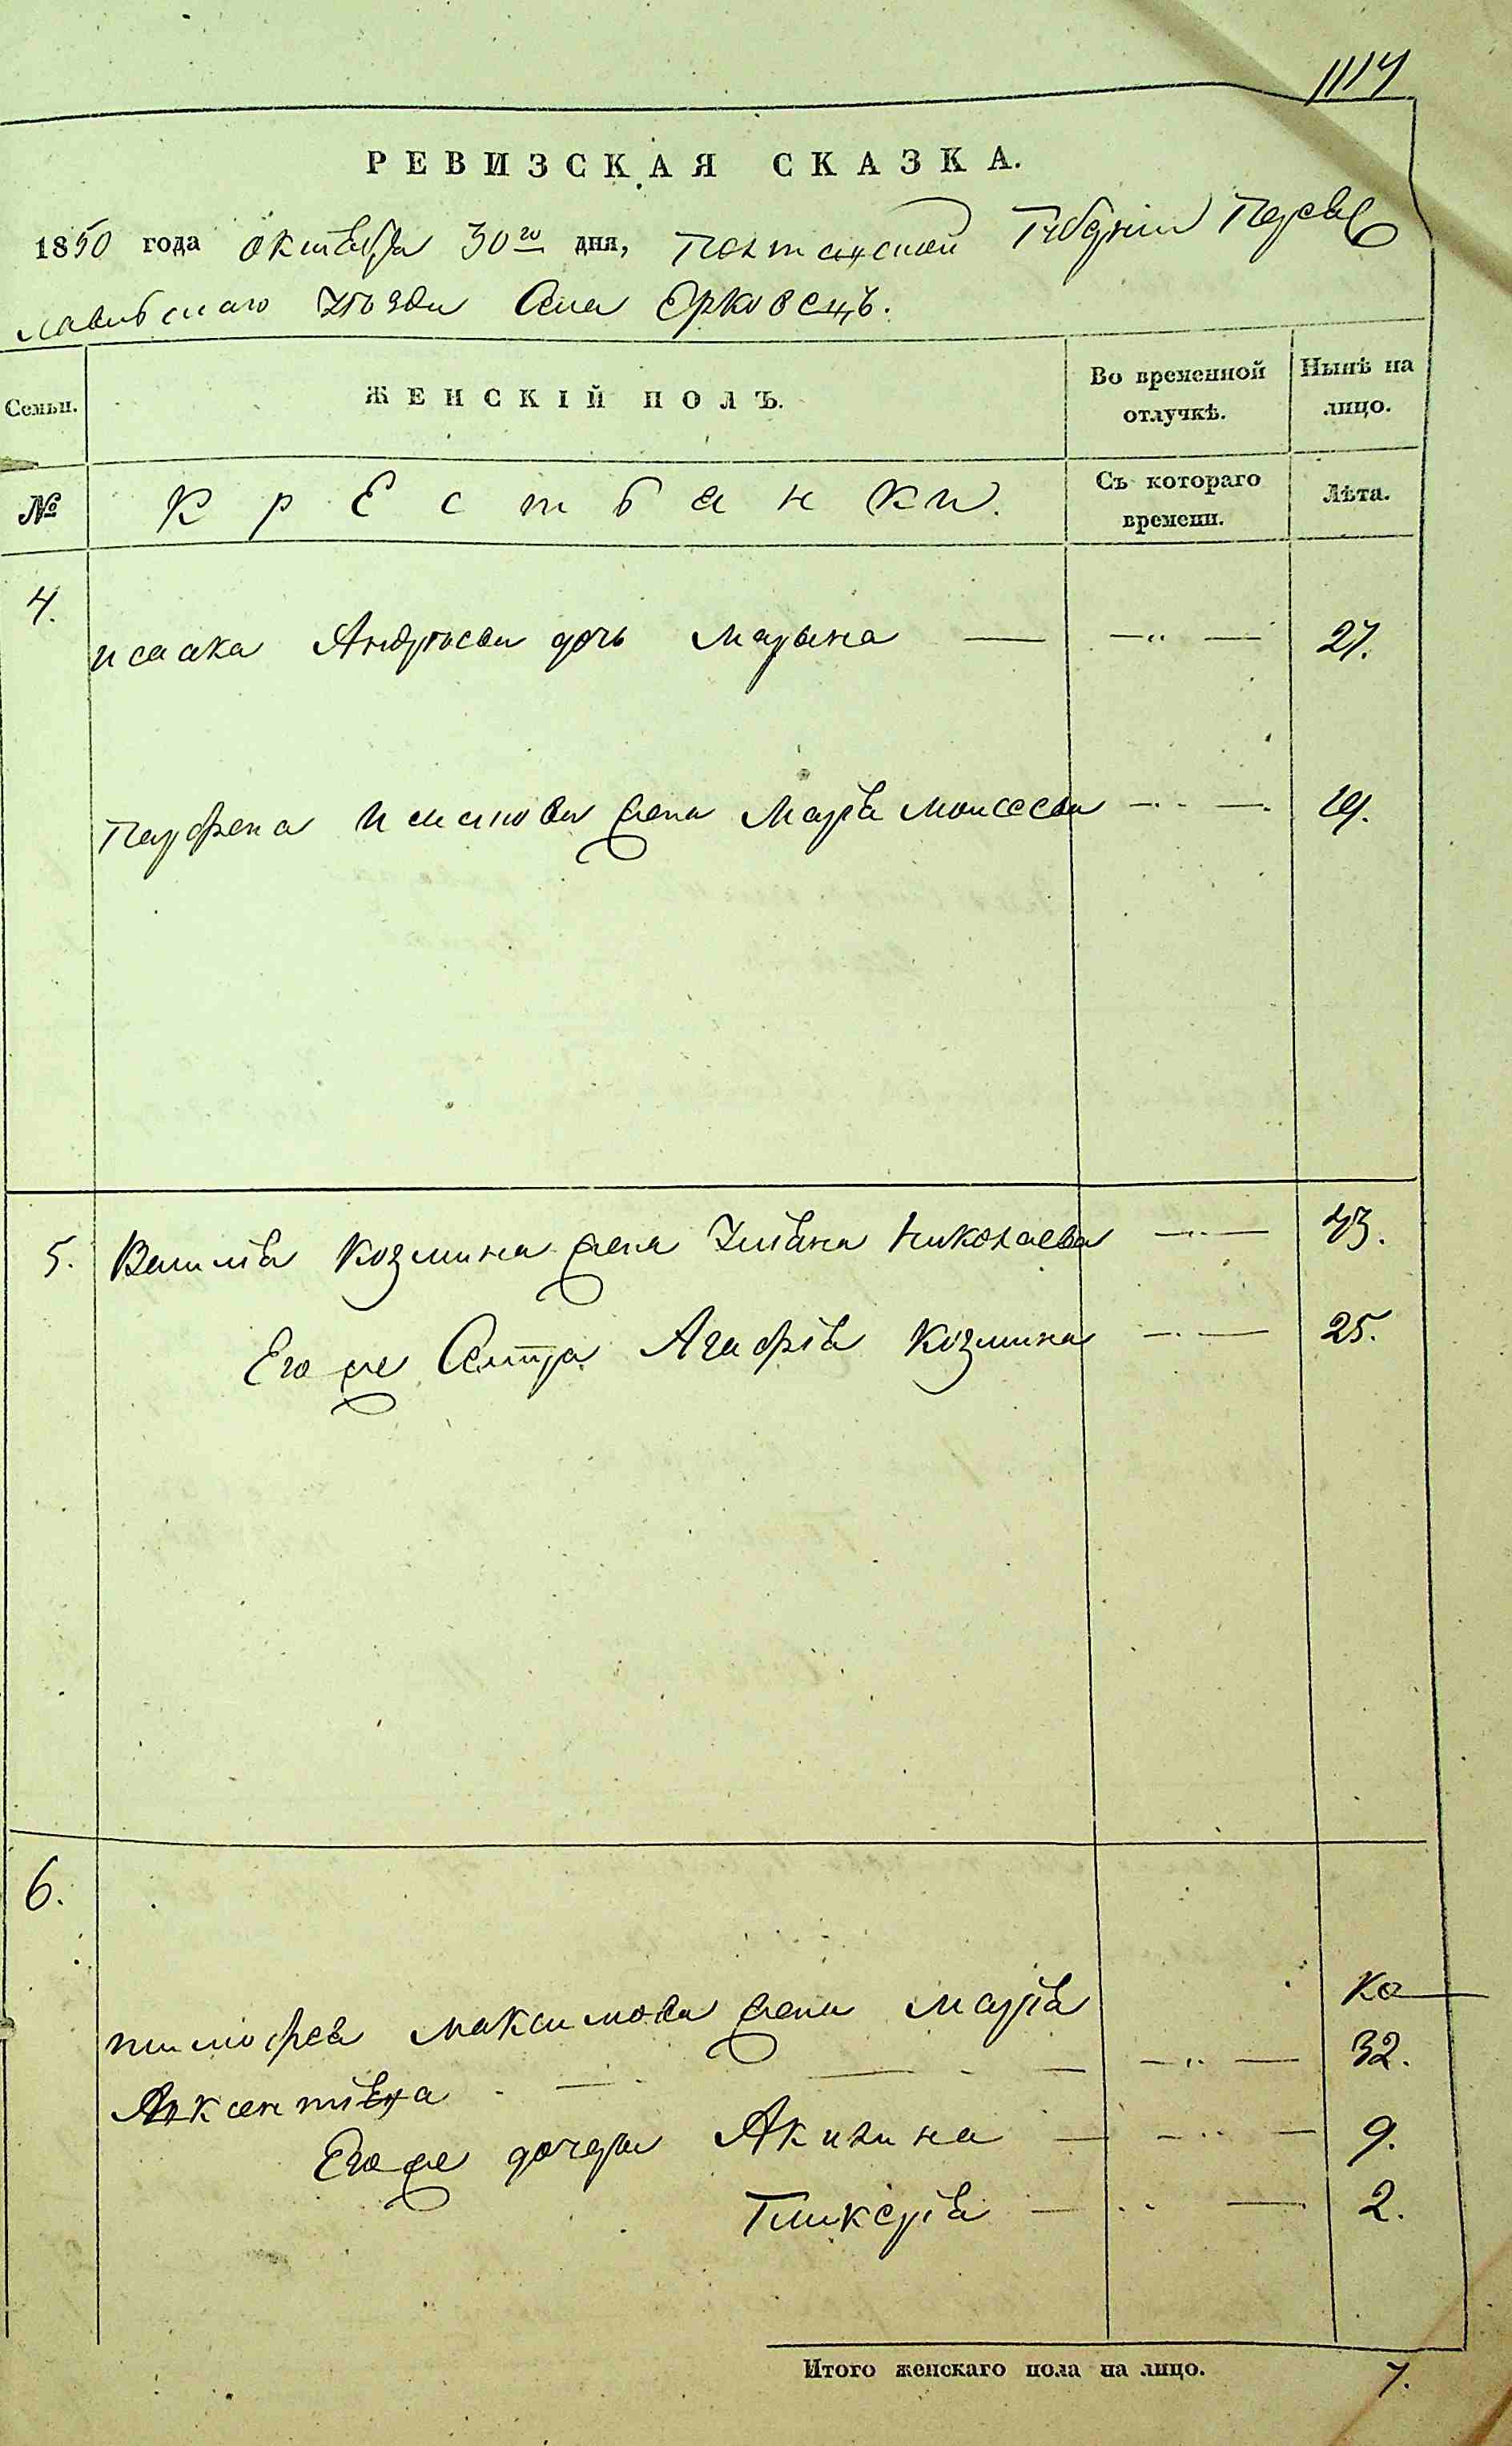 1114
РЕВИЗСКАЯ СКАЗКА.
1850 года октября 30го дня, Полтавской Губернии Переяс
лавскаго Уѣзда Села Ерковецъ.
Семьи.
ЖЕНСКІЙ ПОЛЪ.
Во временной отлучкѣ.
Нынѣ на лицо.
№
Крестьянки.
Съ котораго времени.
Лѣта.
4.
Исаака Андреева дочь Марына — —"— 27.
Парфена жена Марія Моисеева —"—
5. Василія Козмина жена Уліяна Николаева —"— 43.
Его же Сестра Агафія Козмина —"— 25.
6.
Тимофея Максимова жена Марія
Авксентіева — —"— 32.
Его же дочери Акилина — —"— 9.
Гликерія — —"— 2.
Итого женскаго пола на лицо. 7.